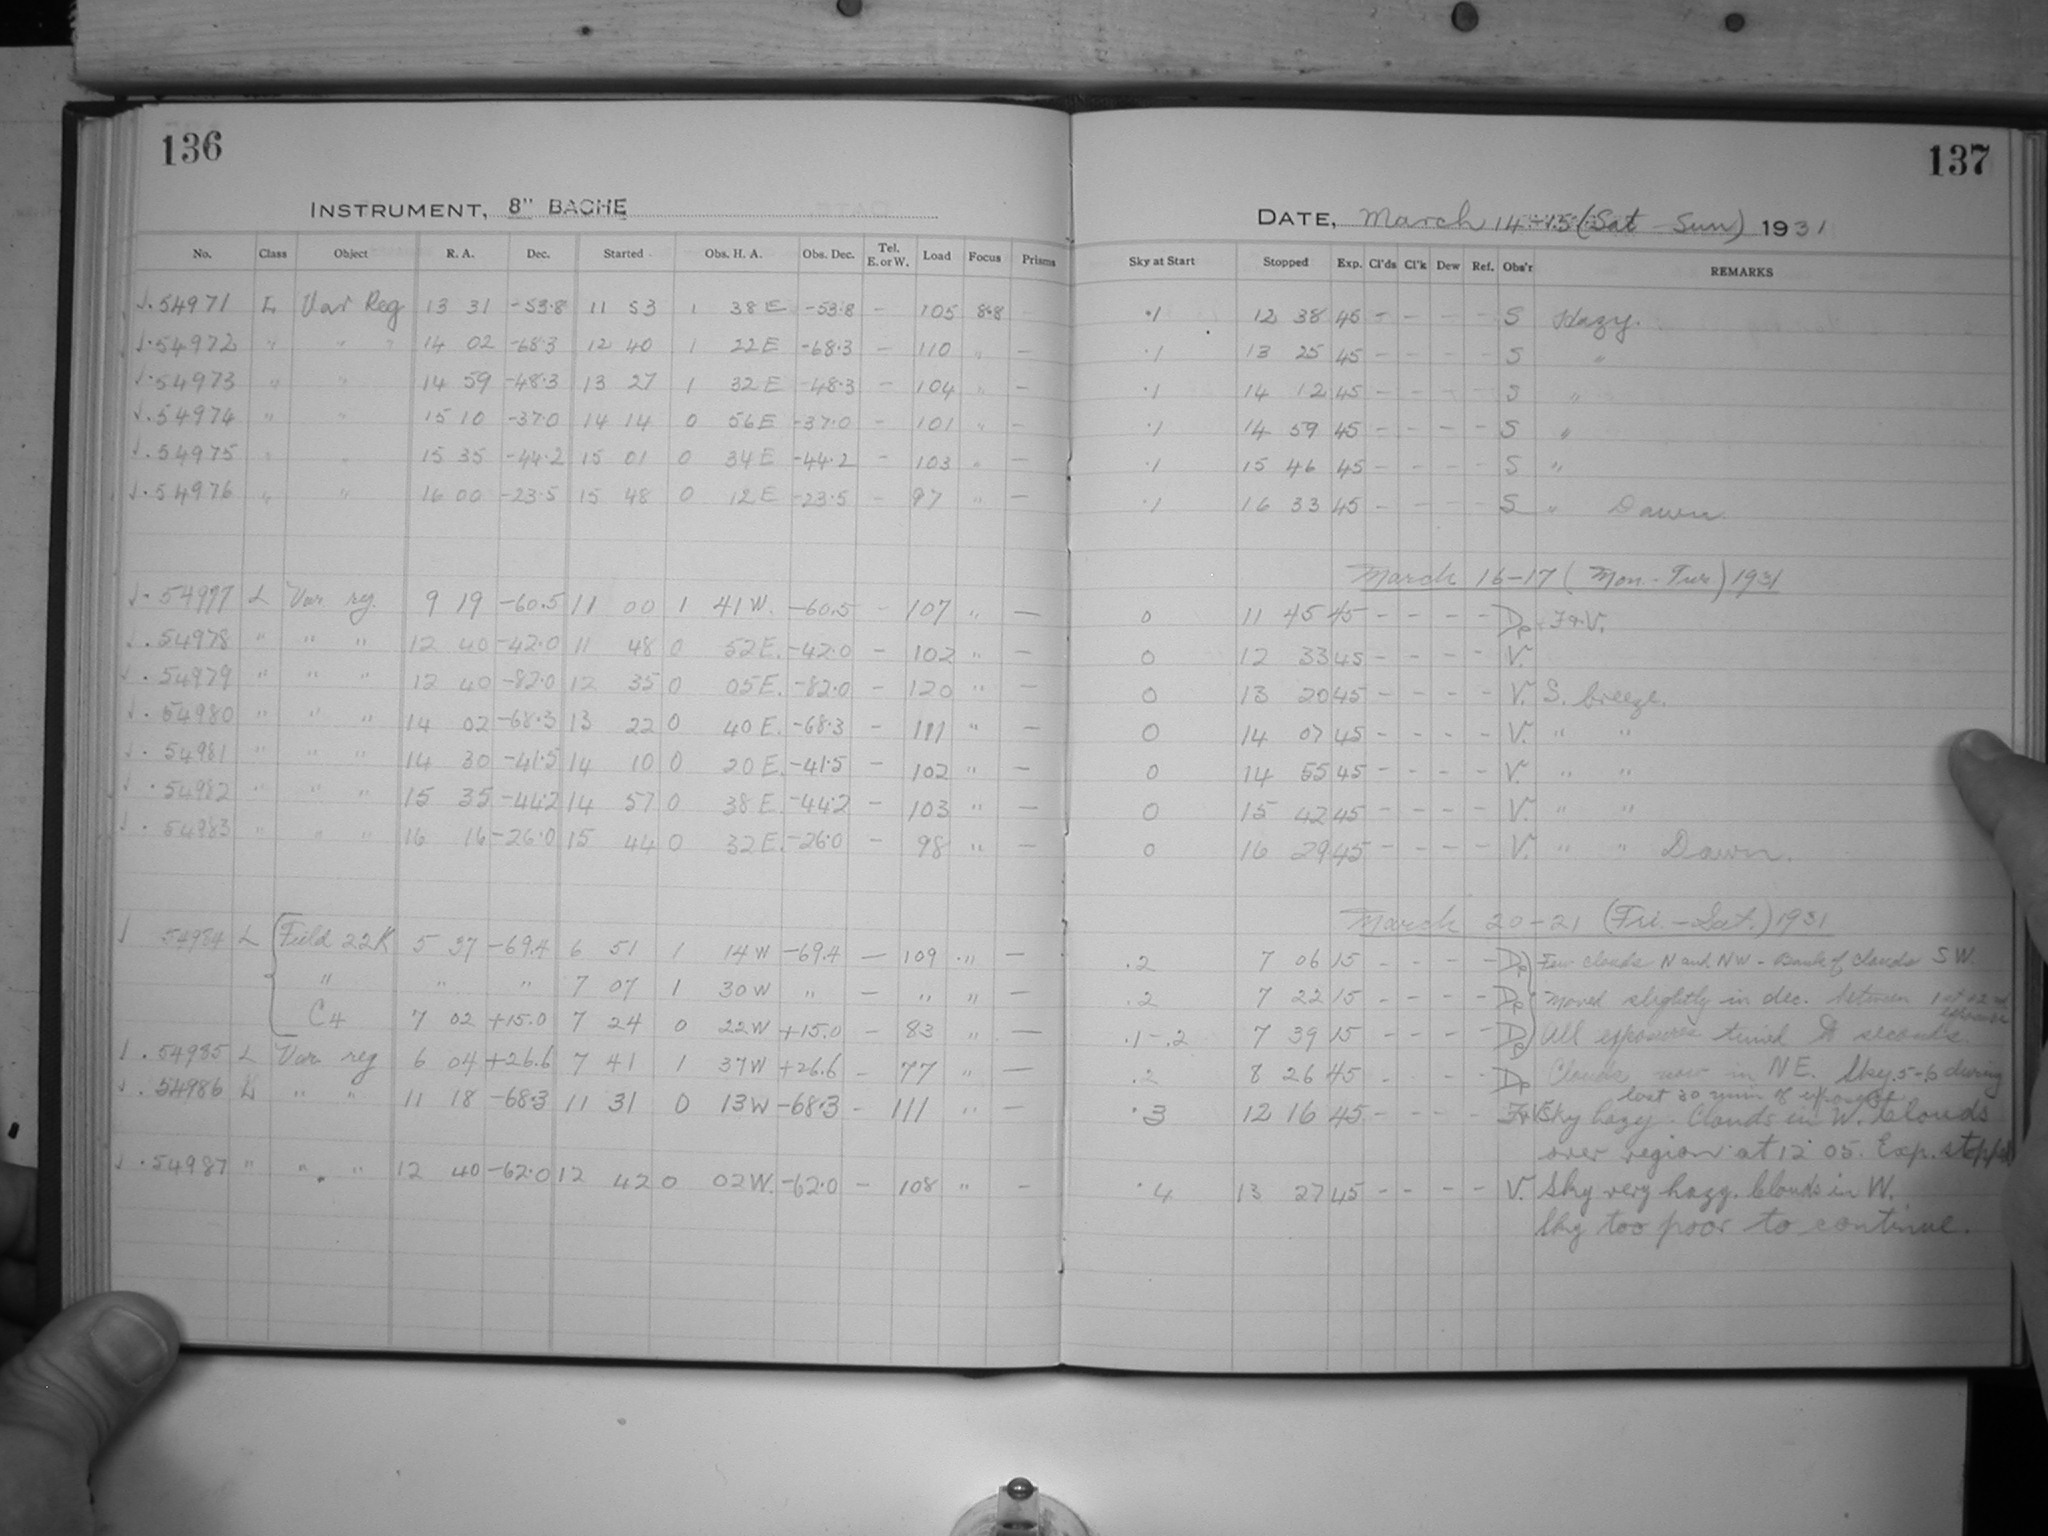 136
INSTRUMENT, 8" BACHE
No. Class Object R. A. Dec. Started Obs. H. A. Obs. Dec. Tel. E. or W. Load Focus Prisms
√.54971 L Var Reg 13 31 -53.8 11 53 1 38 E -53.8 - 105 8.8
√.54972 " " " 14 02 -68.3 12 40 1 22 E -68.3 - 110 " -
√.54973 " " 14 59 -48.3 13 27 1 32 E -48.3 - 104 " -
√.54974 " " 15 10 -37.0 14 14 0 56 E -37.0 - 101 " -
√.54975 " " 15 35 -44.2 15 01 0 34 E -44.2 - 103 " -
√.54976 " " 16 00 -23.5 15 48 0 12 E -23.5 - 97 " -
√.54977 L Var reg. 9 19 -60.5 11 00 1 41 W. -60.5 - 107 " -
√.54978 " " " 12 40 -42.0 11 48 0 52 E. -42.0 - 102 " -
√.54979 " " " 12 40 -82.0 12 35 0 05 E. -82.0 - 120 " -
√.54980 " " " 14 02 -68.3 13 22 0 40 E. -68.3 - 111 " -
√.54981 " " " 14 30 -41.5 14 10 0 20 E. -41.5 - 102 " -
√.54982 " " " 15 35 -44.2 14 57 0 38 E. -44.2 - 103 " -
√.54983 " " " 16 16 -26.0 15 44 0 32 E. -26.0 - 98 " -
√ 54984 L Field 22K 5 37 -69.4 6 51 1 14 W -69.4 - 109 " -
" " " 7 07 1 30 W " - " " -
C4 7 02 +15.0 7 24 0 22 W +15.0 - 83 " -
√.54985 L Var reg 6 04 +26.6 7 41 1 37 W +26.6 - 77 " -
√.54986 L " " 11 18 -68.3 11 31 0 13 W -68.3 - 111 " -
√.54987 " " " 12 40 -62.0 12 42 0 02 W. -62.0 - 108 " -
137
DATE, March 14-15 (Sat - Sun) 1931
Sky at Start Stopped Exp. Cl'ds Cl'k Dew Ref. Obs'r REMARKS
.1 12 38 45 - - - - S Hazy.
.1 13 25 45 - - - - S "
.1 14 12 45 - - - - S "
.1 14 59 45 - - - - S "
.1 15 46 45 - - - - S "
.1 16 33 45 - - - - S " Dawn
March 16-17 (Mon-Tue) 1931
0 11 45 45 - - - - Dp. F.V.
0 12 33 45 - - - - V.
0 13 20 45 - - - - V. S. breeze.
0 14 07 45 - - - - V. " "
0 14 55 45 - - - - V. " "
0 15 42 45 - - - - V. " "
0 16 29 45 - - - - V. " " Dawn.
March 20-21 (Fri.-Sat.) 1931
.2 7 06 15 - - - - Dp Few clouds N and NW - Bank of clouds SW
.2 7 22 15 - - - - Dp Moved slightly in dec. between 1st & 2nd exposure
.1-.2 7 39 15 - - - - Dp All exposures timed seconds.
.2 8 26 45 - - - - Dp Clouds now in NE. Sky .5-6 during
last 30 min of exposure
.3 12 16 45 - - - - Sky hazy. Clouds in W. Clouds
over region at 12 05. Exp. stopped
.4 13 27 45 - - - - V. Sky very hazy. Clouds in W.
Sky too poor to continue.